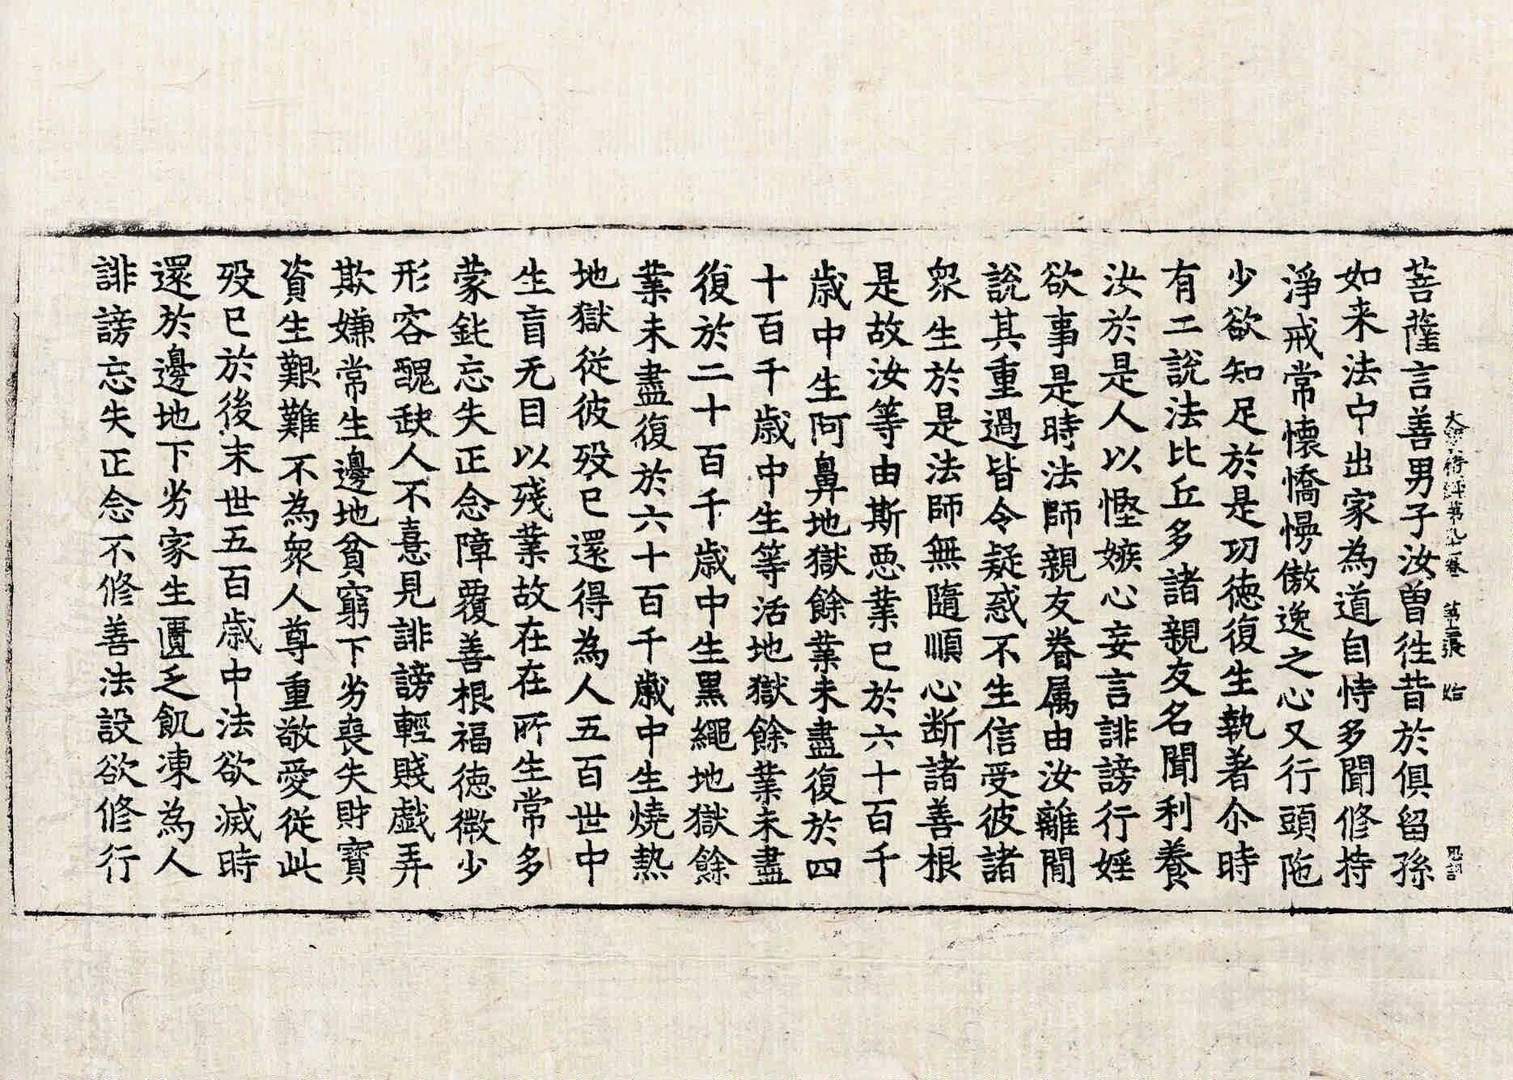 菩薩言善男子汝曽徃昔於俱留孫
大寳積經第九一卷 第三張 始
如来法中出家為道自恃多聞修持
淨戒常懷憍慢傲逸之心又行頭陁
少欲知足於是功德復生執著尒時
有二說法比丘多諸親友名聞利養
汝於是人以慳嫉心妄言誹謗行婬
欲事是時法師親友眷属由汝離間
說其重過皆令疑惑不生信受彼諸
衆生於是法師無隨順心断諸善根
是故汝等由斯惡業已於六十百千
歳中生阿鼻地獄餘業未盡復於四
十百千歳中生等活地獄餘業未盡
復於二十百千歳中生黒繩地獄餘
業未盡復於六十百千歳中生燒熱
地獄從彼歿已還得為人五百世中
生盲无目以残業故在在所生常多
蒙鈍忘失正念障覆善根福德微少
形容醜缺人不憙見誹謗輕賤戲弄
欺嫌常生邊地貧窮下劣喪失財寶
資生艱難不為衆人尊重敬愛從此
歿已於後末世五百歳中法欲滅時
還於邊地下劣家生匱乏飢凍為人
誹謗忘失正念不修善法設欲修行